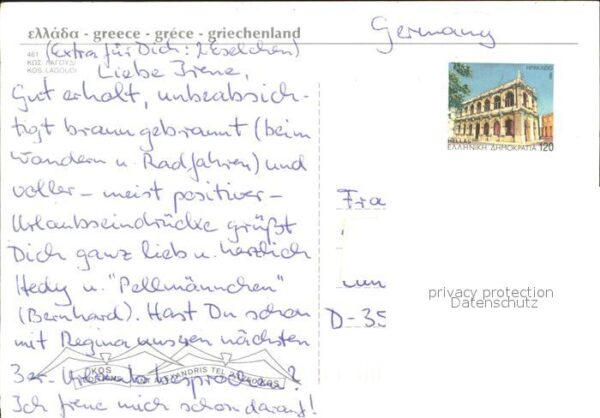 ελλάδα - greece - gréce - griechenland
Germany
461
ΚΩΣ. ΛΑΓΟΥΔΙ
KOS. LAGOUDI
(Extra für Dich: 2 Eselchen)
Liebe Irene,
Gut erholt, unbeabsich-
tigt braun gebrannt (beim
Wandern u. Radfahren) und
voller - meist positiver -
Urlaubseindrücke grüßt
Dich ganz lieb u. herzlich
Hedy u. "Pellmännchen"
(Bernhard). Hast Du schon
mit Regina unseren nächsten
3er-Urlaub besprochen?
Ich freue mich schon darauf!
ΗΡΑΚΛΕΙΟ
HELLAS
ΕΛΛΗΝΙΚΗ ΔΗΜΟΚΡΑΤΙΑ 120
Fra
D-35
privacy protection
Datenschutz
KOS
TEL
KOS